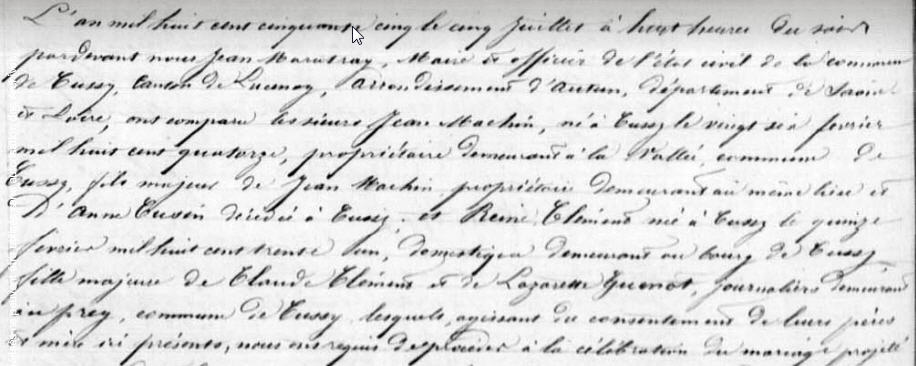 L'an mil huit cent cinquante cinq le cinq Juillet à huit heures du soir
pardevant nous Jean Marutray, Maire et officier de l'état civil de la commune
de Cussy, canton de Lucenay, Arrondissement d'autun, département de Saone
et Loire, ont comparu les sieurs Jean Machin, né à Cussy le vingt six fevrier
mil huit cent quatorze, propriétaire demeurant à la Vallée, commune de
Cussy, fils majeur de Jean Machin propriétaire demeurant au même lieu et
D'Anne Cusin décédée à Cussy, et Reine Clément née à Cussy le quinze
fevrier mil huit cent trente un, domestique demeurant au bourg de Cussy
fille majeure de Claude Clément et de Lazarette Guenot, journaliers demeurant
au prey, commune de Cussy lesquels, agissant du consentement de leurs pères
et mère ici présents, nous ont requis de procéder à la célébration du mariage projeté